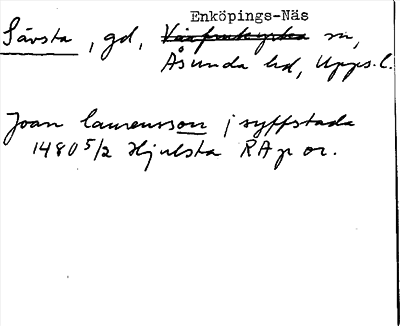 Enköpings-Näs
Sävsta, gd, sn,
Åsunda hd, Upps. l.
Joan laurensson j syffstada
1480 5/2 Hjulsta RA p or.